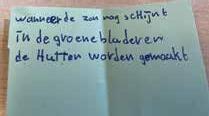 wanneer de zon nog schijnt
in de groene bladeren
de Hutten worden gemaakt